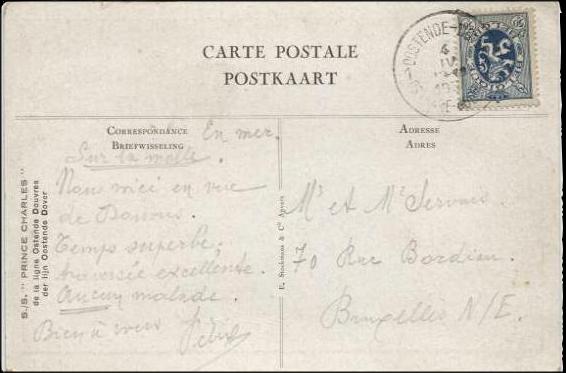 CARTE POSTALE
POSTKAART
OOSTENDE-DO
4
IV
CORRESPONDANCE
BRIEFWISSELING
En mer.
Sur la malle.
Nous voici en vue
de Douvres.
Temps superbe.
traversée excellente.
Aucun malade.
Bien à vous
ADRESSE
ADRES
Mr et Me Servais
70 Rue Bordiau.
Bruxelles N/E.
S/S. "PRINCE CHARLES"
de la ligne Ostende Douvres
der lijn Oostende Dover
E. Stockmans & Co Anvers